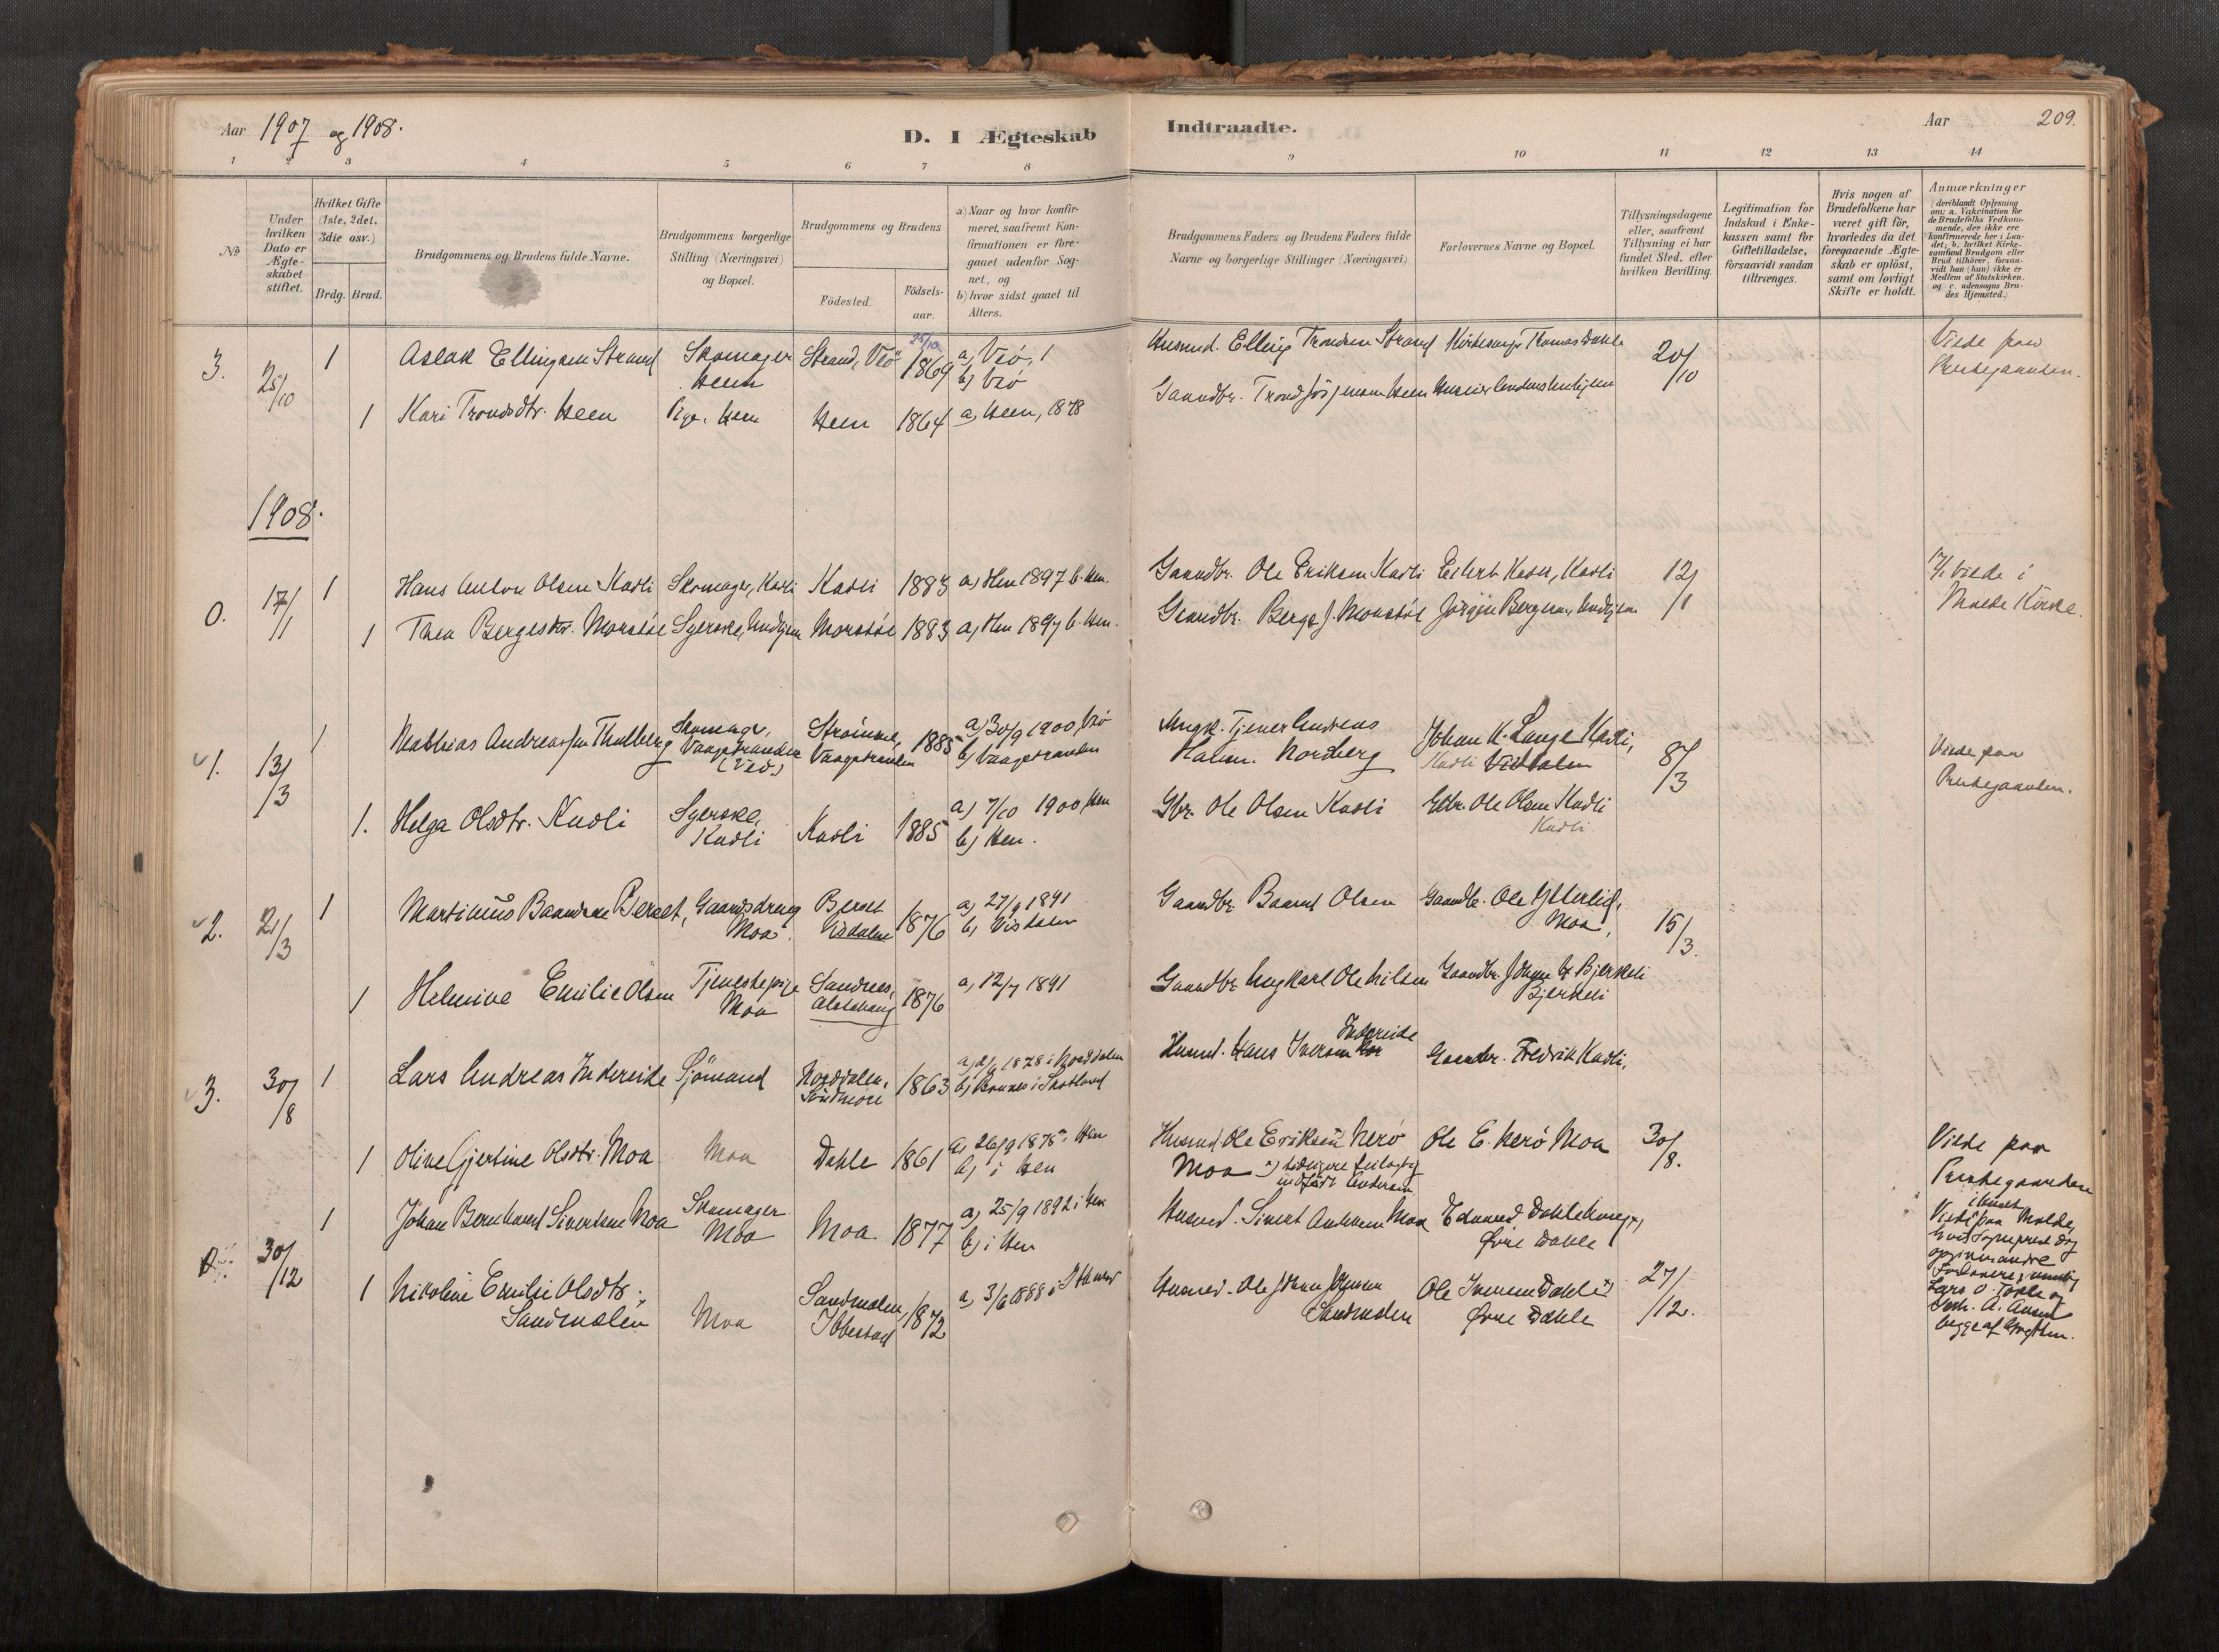 Aar 1907 og 1908.
D. I Ægteskab
Indtraadte.
Aar
209.
1 2 3 4 5 6 7 8 9 10 11 12 13 14
No
Under hvilken Dato er Ægteskabet stiftet.
Hvilket Gifte (1ste, 2det, 3die osv.)
Brdg. Brud.
Brudgommens og Brudens fulde Navne.
Brudgommens borgerlige Stilling (Næringsvei) og Bopæl.
Brudgommens og Brudens
Fødested.
Fødselsaar.
a) Naar og hvor konfirmeret, saafremt Konfirmationen er foregaaet udenfor Sognet, og
b) hvor sidst gaaet til Alters.
Brudgommens Faders og Brudens Faders fulde Navne og borgerlige Stillinger (Næringsvei)
Forlovernes Navne og Bopæl.
Tillysningsdagene eller, saafremt Tillysning ei har fundet Sted, efter hvilken Bevilling.
Legitimation for Indskud i Enkekassen samt for Giftetilladelse, forsaavidt saadan tiltrænges.
Hvis nogen af Brudefolkene har været gift før, hvorledes da det foregaaende Ægteskab er opløst, samt om lovligt Skifte er holdt.
Anmærkninger (deriblandt Oplysning om: a. Vakcination for de Brudefolks Vedkommende, der ikke ere konfirmerede her i Landet; b. hvilket Kirkesamfund Brudgom eller Brud tilhører, forsaavidt han (hun) ikke er Medlem af Statskirken. og c. udensogns Brudes Hjemsted.)
3. 25/10 1 Aslak Ellingsen Strand Skomager Heen Strand, Veø 25/10 1869 a) Veø, 1 b) Veø Husmd. Elling Trondsen Strand Kirkesanger Thomas Dahle 20/10 Viede paa Prestegaarden.
1 Kari Trondsdtr. Heen Pige. Heen Heen 1864 a, Heen, 1878 Gaardbr. Trond Jørgensen Heen
1908.
0. 17/1 1 Hans Anton Olsen Kavli Skomager, Kavli Kavli 1883 a) Hen 1897 b. Hen. Gaardbr. Ole Eriksen Kavli Eilert Kavli, Kavli 12/1 17/1 viede i Molde Kirke.
1 Thea Bergesdtr. Monstøl Syerske, Undhjem Morstøl 1883 a) Hen 1897 b. Hen. Gaardbr. Berge J. Monstøl Jørgen Bergesen, Undhjem
1. 13/3 1 Mathias Andreassen Thulberg Skomager, Vaagstranden (Veø.) Strømme, Vaagstranden 1885 a) 30/9 1900, Veø b) Vaagstranden Ungk. Tjener Andreas Halvor. Nordberg Johan K. Lange Kavli, Kavli 8/3 Viede paa Prestegaarden.
1. Helga Olsdtr. Kavli Syerske, Kavli Kavli 1885 a) 7/10 1900 Hen b) Hen. Gbr. Ole Olsen Kavli Gbr. Ole Olsen Kavli Kavli.
2. 21/3 1 Martinus Baardsen Berset, Gaardsdreng Moa. Berset Visdalen 1876 a, 27/9 1891 b, Visdalen Gaardbr Baard Olsen Gaardbr. Ole Ytterlid, Moa, 15/3.
1 Helmine Emilie Olsen Tjenestepige Moa Sandnes, Alstahaug 1876 a, 12/7 1891 Gaardbr Ungkarl Ole Nilsen Gaardbr. Johan H Bjerkeli Bjerkeli
3. 30/8 1 Lars Andreas Indereide Sjømand Norddalen, Søndmøre 1863 a, 2/6 1878 i Norddalen b) i Skotland Husmd. Hans Iversen Indereide Gaardbr. Fredrik Kavli,
1 Oline Gjertine Olsdtr. Moa Moa Dahle 1861 a, 26/9 1875 i Hen b) i Hen Husmd. Ole Eriksen Herø Moa x) tidligere feilagtig indført Andersen Ole E. Herø Moa 30/8. Viede paa Prestegaarden
0. 30/12 1 Johan Bernhard Sivertsen Moa Skomager Moa Moa. 1877 a, 25/9 1892 i Hen b) i Hen Husmd. Sivert Andersen Moa Edvard Dahle x) Øvre Dahle 27/12. Viedt paa Molde, hvis Sogneprest dog opgiver andre Forlovere, nemlig Lars O. og Joh. A. begge af
1 Nikoline Emilie Olsdtr. Sandmælen Moa Sandmælen, Ibbestad 1872 a, 3/6 1888 i Ibbestad Husmd. Ole Johan Johnsen Sandmælen Ole Iversen Dahle x) Øvre Dahle